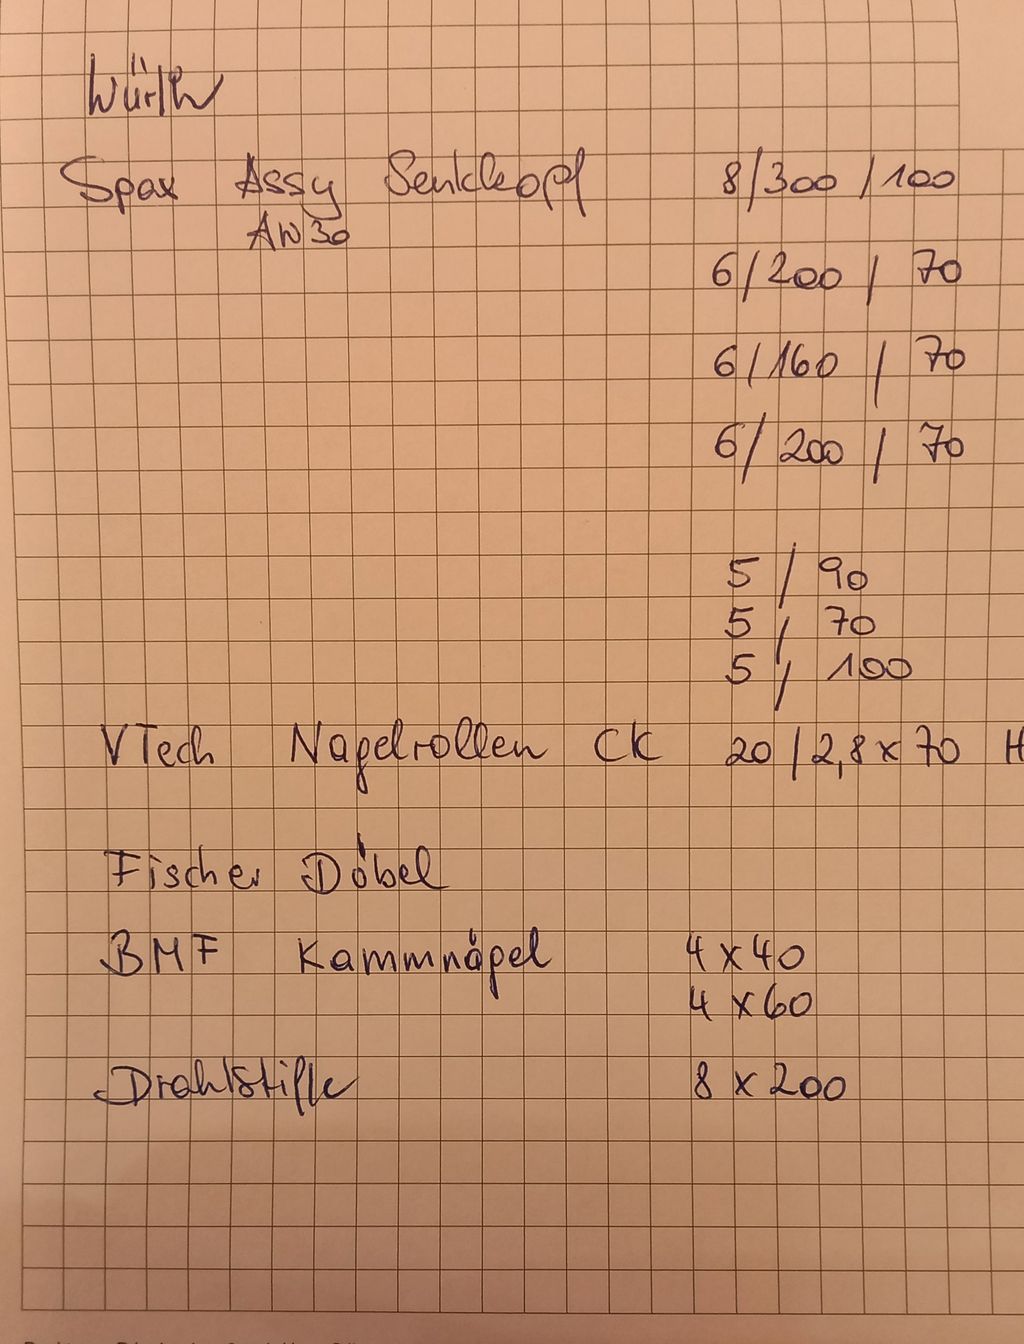 Würth
Spax Assy Senkkopf 8/300/100
AW30
6/200/70
6/160/70
6/200/70
5/90
5/70
5/100
VTech Nagelrollen CK 20/2,8x70 H
Fischer Döbel
BMF Kammnägel 4x40
4x60
Drahtstifte 8x200